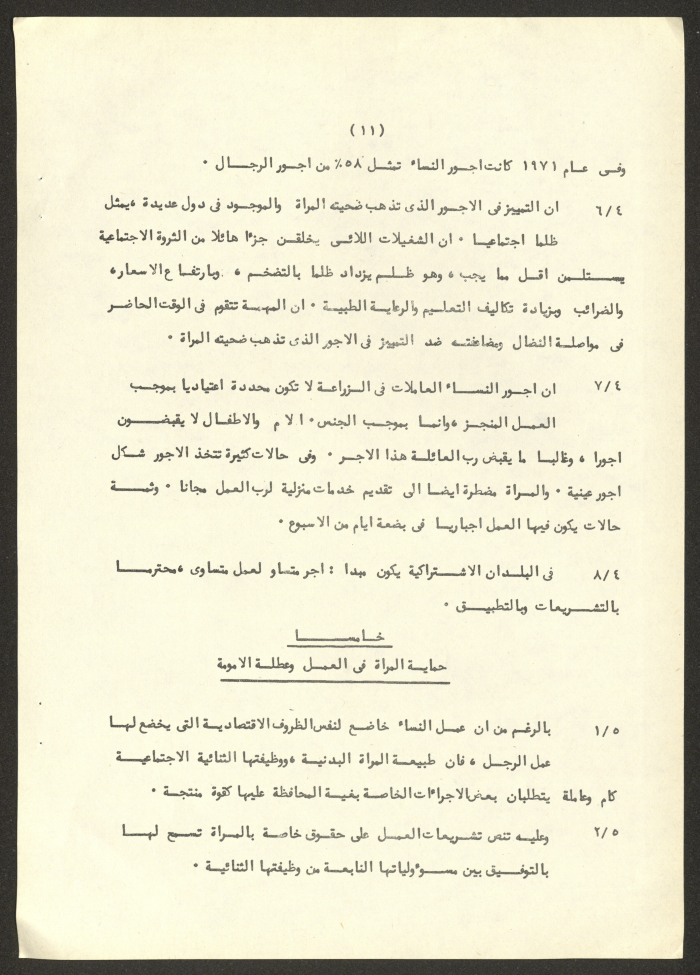 (١١)
وفى عام ١٩٧١ كانت اجور النساء تمثل ٥٨٪ من اجور الرجال ٠
٦/٤ ان التمييز فى الاجور الذى تذهب ضحيته المراة والموجود فى دول عديدة ،يمثل
ظلما اجتماعيا ٠ ان الشغيلات اللائى يخلقن جزءا هائلا من الثروة الاجتماعية
يستلمن اقل مما يجب ، وهو ظلم يزداد ظلما بالتضخم ، وبارتفاع الاسعار،
والضرائب وبزيادة تكاليف التعليم والرعاية الطبية ٠ ان المهمة تتقوم فى الوقت الحاضر
فى مواصلة النضال ومضاعفته ضد التمييز فى الاجور الذى تذهب ضحيته المراة ٠
٧/٤ ان اجور النساء العاملات فى الزراعة لا تكون محددة اعتياديا بموجب
العمل المنجز ،وانما بموجب الجنس ٠ الام والاطفال لا يقبضون
اجورا ، وغالبا ما يقبض رب العائلة هذا الاجر ٠ وفى حالات كثيرة تتخذ الاجور شكل
اجور عينية ٠ والمراة مضطرة ايضا الى تقديم خدمات منزلية لرب العمل مجانا ٠ وثمة
حالات يكون فيها العمل اجباريا فى بضعة ايام من الاسبوع ٠
٨/٤ فى البلدان الاشتراكية يكون مبدا : اجر متساو لعمل متساوى ،محترما
بالتشريعات وبالتطبيق ٠
خامسا
حماية المراة فى العمل وعطلة الامومة
١/٥ بالرغم من ان عمل النساء خاضع لنفس الظروف الاقتصادية التى يخضع لها
عمل الرجل ، فان طبيعة المراة البدنية ،ووظيفتها الثنائية الاجتماعية
كام وعاملة يتطلبان بعض الاجراءات الخاصة بغية المحافظة عليها كقوة منتجة ٠
٢/٥ وعليه تنص تشريعات العمل على حقوق خاصة بالمراة تسمح لها
بالتوفيق بين مسوءولياتها النابعة من وظيفتها الثنائية ٠